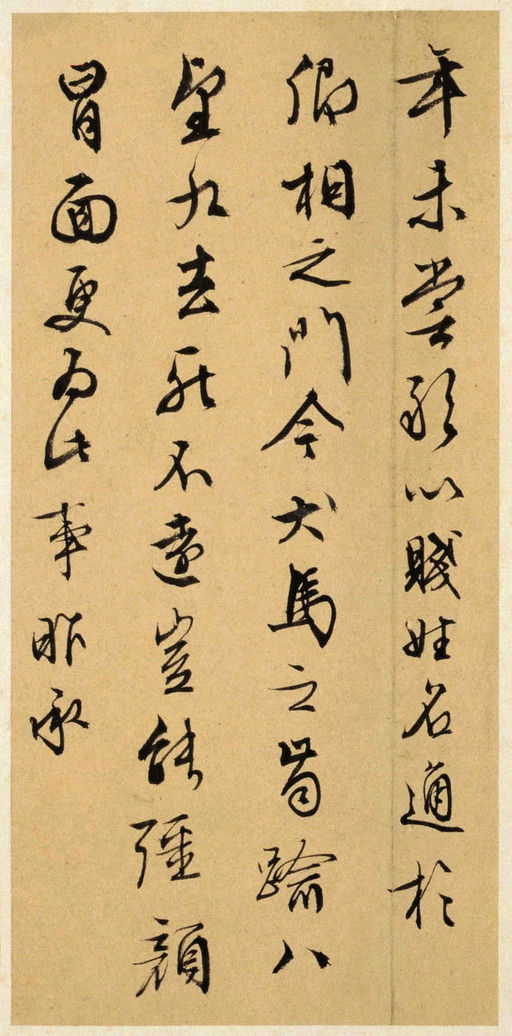 年未嘗敢以賤姓名通於
卿相之門今犬馬之齒踰八
望九去死不遠豈能彊顏
冒面更為此事昨承